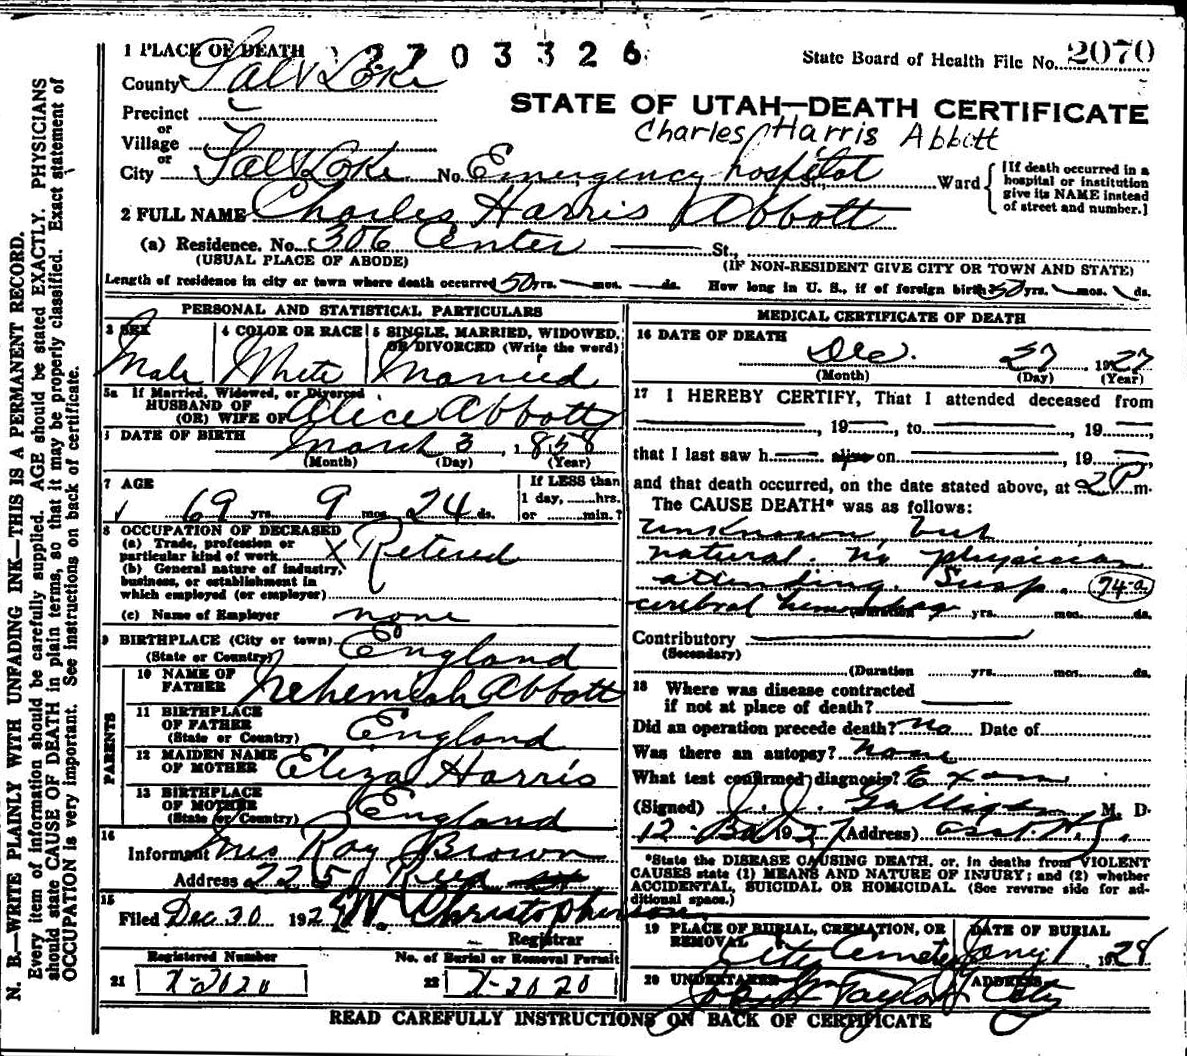 1 PLACE OF DEATH 2703326 State Board of Health File No. 2070
County Salt Lake
STATE OF UTAH—DEATH CERTIFICATE
Precinct
Charles Harris Abbitt
or
Village
or
City Salt Lake No. Emergency hospital St., Ward [If death occurred in a hospital or institution give its NAME instead of street and number.]
2 FULL NAME Charles Harris Abbott
(a) Residence. No. 306 Center St.,
(USUAL PLACE OF ABODE) (IF NON-RESIDENT GIVE CITY OR TOWN AND STATE)
Length of residence in city or town where death occurred 50 yrs. mos. ds. How long in U. S., if of foreign birth? 50 yrs. mos. ds.
PERSONAL AND STATISTICAL PARTICULARS
3 SEX 4 COLOR OR RACE 5 SINGLE, MARRIED, WIDOWED, OR DIVORCED (Write the word)
Male White Married
5a If Married, Widowed, or Divorced
HUSBAND OF
(OR) WIFE OF Alice Abbott
DATE OF BIRTH March 3, 1858
(Month) (Day) (Year)
7 AGE If LESS than
1 day, hrs.
69 yrs. 9 mos. 24 ds. or min.?
8 OCCUPATION OF DECEASED
(a) Trade, profession or
particular kind of work X Retired
(b) General nature of industry,
business, or establishment in
which employed (or employer)
(c) Name of Employer none
9 BIRTHPLACE (City or town)
(State or Country) England
PARENTS
10 NAME OF
FATHER Nehemiah Abbott
11 BIRTHPLACE
OF FATHER
(State or Country) England
12 MAIDEN NAME
OF MOTHER Eliza Harris
13 BIRTHPLACE
OF MOTHER
(State or Country) England
14
Informant Mrs Ray Brown
Address 225 Reed
15
Filed Dec 30 192 Christopherson
Registrar
Registered Number No. of Burial or Removal Permit
21 X-2020 22 X-2020
MEDICAL CERTIFICATE OF DEATH
16 DATE OF DEATH
Dec. 27 1927
(Month) (Day) (Year)
17 I HEREBY CERTIFY, That I attended deceased from
, 19 , to , 19 ,
that I last saw h alive on , 19 ,
and that death occurred, on the date stated above, at 2 P m.
The CAUSE DEATH* was as follows:
unknown, but
natural. no physician
attending. Susp. 74-a
cerebral hemorrhag yrs. mos. ds.
Contributory
(Secondary)
(Duration yrs. mos. ds.
18 Where was disease contracted
if not at place of death?
Did an operation precede death? no Date of
Was there an autopsy? none
What test confirmed diagnosis? Exam
(Signed) J. J. Galligan M. D.
12 - 1927 (Address) asst. H.
*State the DISEASE CAUSING DEATH, or, in deaths from VIOLENT
CAUSES state (1) MEANS AND NATURE OF INJURY; and (2) whether
ACCIDENTAL, SUICIDAL OR HOMICIDAL. (See reverse side for ad-
ditional space.)
19 PLACE OF BURIAL, CREMATION, OR REMOVAL DATE OF BURIAL
City Cemetery Jany 1 1928
20 UNDERTAKER ADDRESS
Joseph Wm Taylor City
READ CAREFULLY INSTRUCTIONS ON BACK OF CERTIFICATE
N. B.—WRITE PLAINLY WITH UNFADING INK—THIS IS A PERMANENT RECORD.
Every item of information should be carefully supplied. AGE should be stated EXACTLY. PHYSICIANS
should state CAUSE OF DEATH in plain terms, so that it may be properly classified. Exact statement of
OCCUPATION is very important. See instructions on back of certificate.